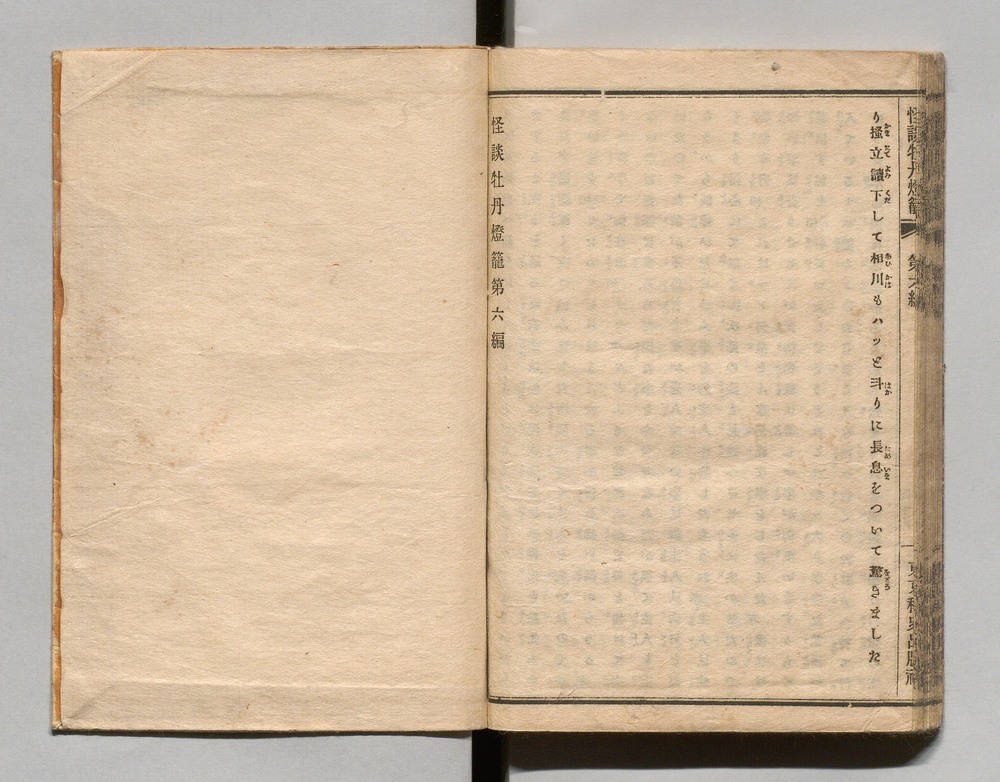 怪談牡丹燈籠 第六編
東京稗史出版社
り搔立讀下して相川もハッと斗りに長息をついて驚きました
怪談牡丹燈籠第六編